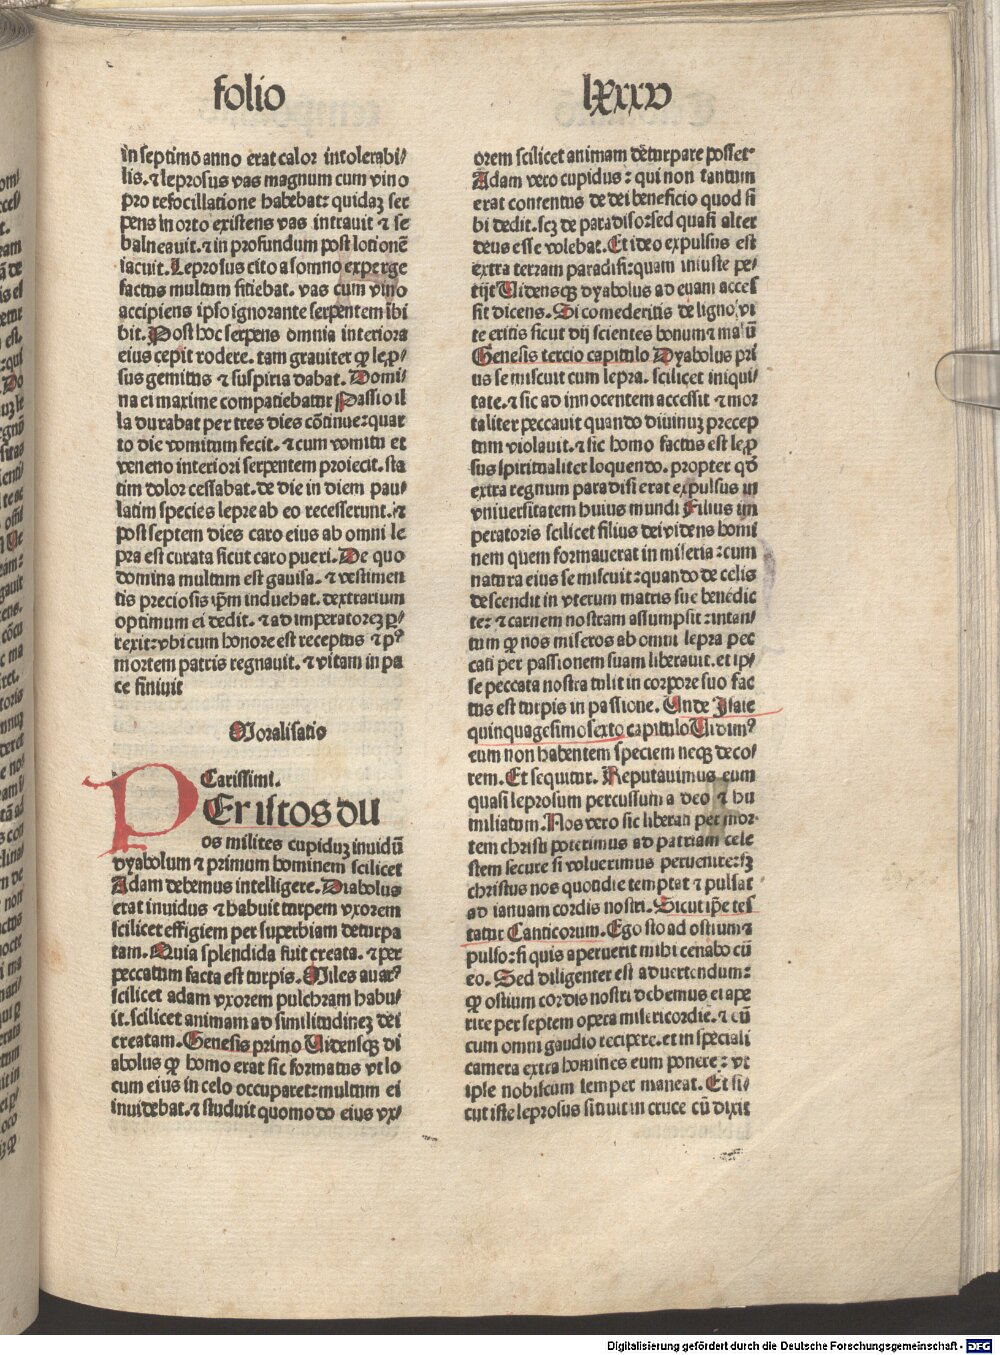 folio
lxxxv
in septimo anno erat calor intolerabi/
lis. ⁊ leprosus vas magnum cum vino
pro refocillatione habebat: quidaꝫ ser
pens in orto existens vas intrauit ⁊ se
balneauit. ⁊ in profundum post lotionē
iacuit. Leprosus cito a somno experge
factus multum sitiebat. vas cum vino
accipiens ipso ignorante serpentem ībi
bit. Post hoc serpens omnia interiora
eius cepit rodere. tam grauiter ꝙ lep̱/
sus gemitus ⁊ suspiria dabat. Domi/
na ei maxime compatiebatur Passio il
la durabat per tres dies cōtinue: quar
to die vomitum fecit. ⁊ cum vomitu et
veneno interiori serpentem proiecit. sta
tim dolor cessabat. de die in diem pau/
latim species lepre ab eo recesserunt. ⁊
post septem dies caro eius ab omni le
pra est curata sicut caro pueri. De quo
domina multum est gauisa. ⁊ vestimen
tis preciosis ip̄m induebat. dextrarium
optimum ei dedit. ⁊ ad imperatoreꝫ ꝑ/
rexit: vbi cum honore est receptus ⁊ pꝰ
mortem patris regnauit. ⁊ vitam in pa
ce finiuit
Moralisatio
Carissimi.
PEr istos du
os milites cupiduꝫ inuidū
dyabolum ⁊ primum hominem scilicet
Adam debemus intelligere. Diabolus
erat inuidus ⁊ habuit turpem vxorem
scilicet effigiem per superbiam deturpa
tam. Quia splendida fuit creata. ⁊ per
peccatum facta est turpis. Miles auarꝰ
scilicet adam vxorem pulchram habu/
it. scilicet animam ad similitudineꝫ dei
creatam. Genesis primo Uidensqꝫ di
abolus ꝙ homo erat sic formatus vt lo
cum eius in celo occuparet: multum ei
inuidebat. ⁊ studuit quomodo eius vx/
orem scilicet animam deturpare posset.
Adam vero cupidus: qui non tantum
erat contentus de dei beneficio quod si
bi dedit. scꝫ de paradiso: sed quasi alter
deus esse volebat. Et ideo expulsus est
extra terram paradisi: quam iniuste pe/
tijt Uidensqꝫ dyabolus ad euam acces
sit dicens. Si comederitis de ligno vi
te eritis sicut dij scientes bonum ⁊ malū
Genesis tercio capitulo Dyabolus pri
us se miscuit cum lepra. scilicet iniqui/
tate. ⁊ sic ad innocentem accessit ⁊ mor
taliter peccauit quando diuinuꝫ precep
tum violauit. ⁊ sic homo factus est lep̱
sus spiritualiter loquendo. propter qd̄
extra regnum paradisi erat expulsus in
vniuersitatem huius mundi Filius im
peratoris scilicet filius dei videns homi
nem quem formauerat in miseria: cum
natura eius se miscuit: quando de celis
descendit in vterum matris sue benedic
te: ⁊ carnem nostram assumpsit: intan/
tum ꝙ nos miseros ab omni lepra pec
cati per passionem suam liberauit. et ip/
se peccata nostra tulit in corpore suo fac
tus est turpis in passione. Unde Isaie
quinquagesimosexto capitulo Uidimꝰ
eum non habentem speciem neqꝫ deco/
rem. Et sequitur. Reputauimus eum
quasi leprosum percussum a deo ⁊ hu
miliatum. Nos vero sic liberati per mor
tem christi poterimus ad patriam cele
stem secure si voluerimus peruenire: sꝫ
christus nos quotidie temptat ⁊ pulsat
ad ianuam cordis nostri. Sicut ip̄e tes
tatur Canticorum. Ego sto ad ostium ⁊
pulso: si quis aperuerit mihi cenabo cū
eo. Sed diligenter est aduertendum:
ꝙ ostium cordis nostri debemus ei ape
rire per septem opera misericordie. ⁊ eū
cum omni gaudio recipere. et in speciali
camera extra homines eum ponere: vt
ipse nobiscum semper maneat. Et si/
cut iste leprosus sitiuit in cruce cū dixit
Digitalisierung gefördert durch die Deutsche Forschungsgemeinschaft - DFG